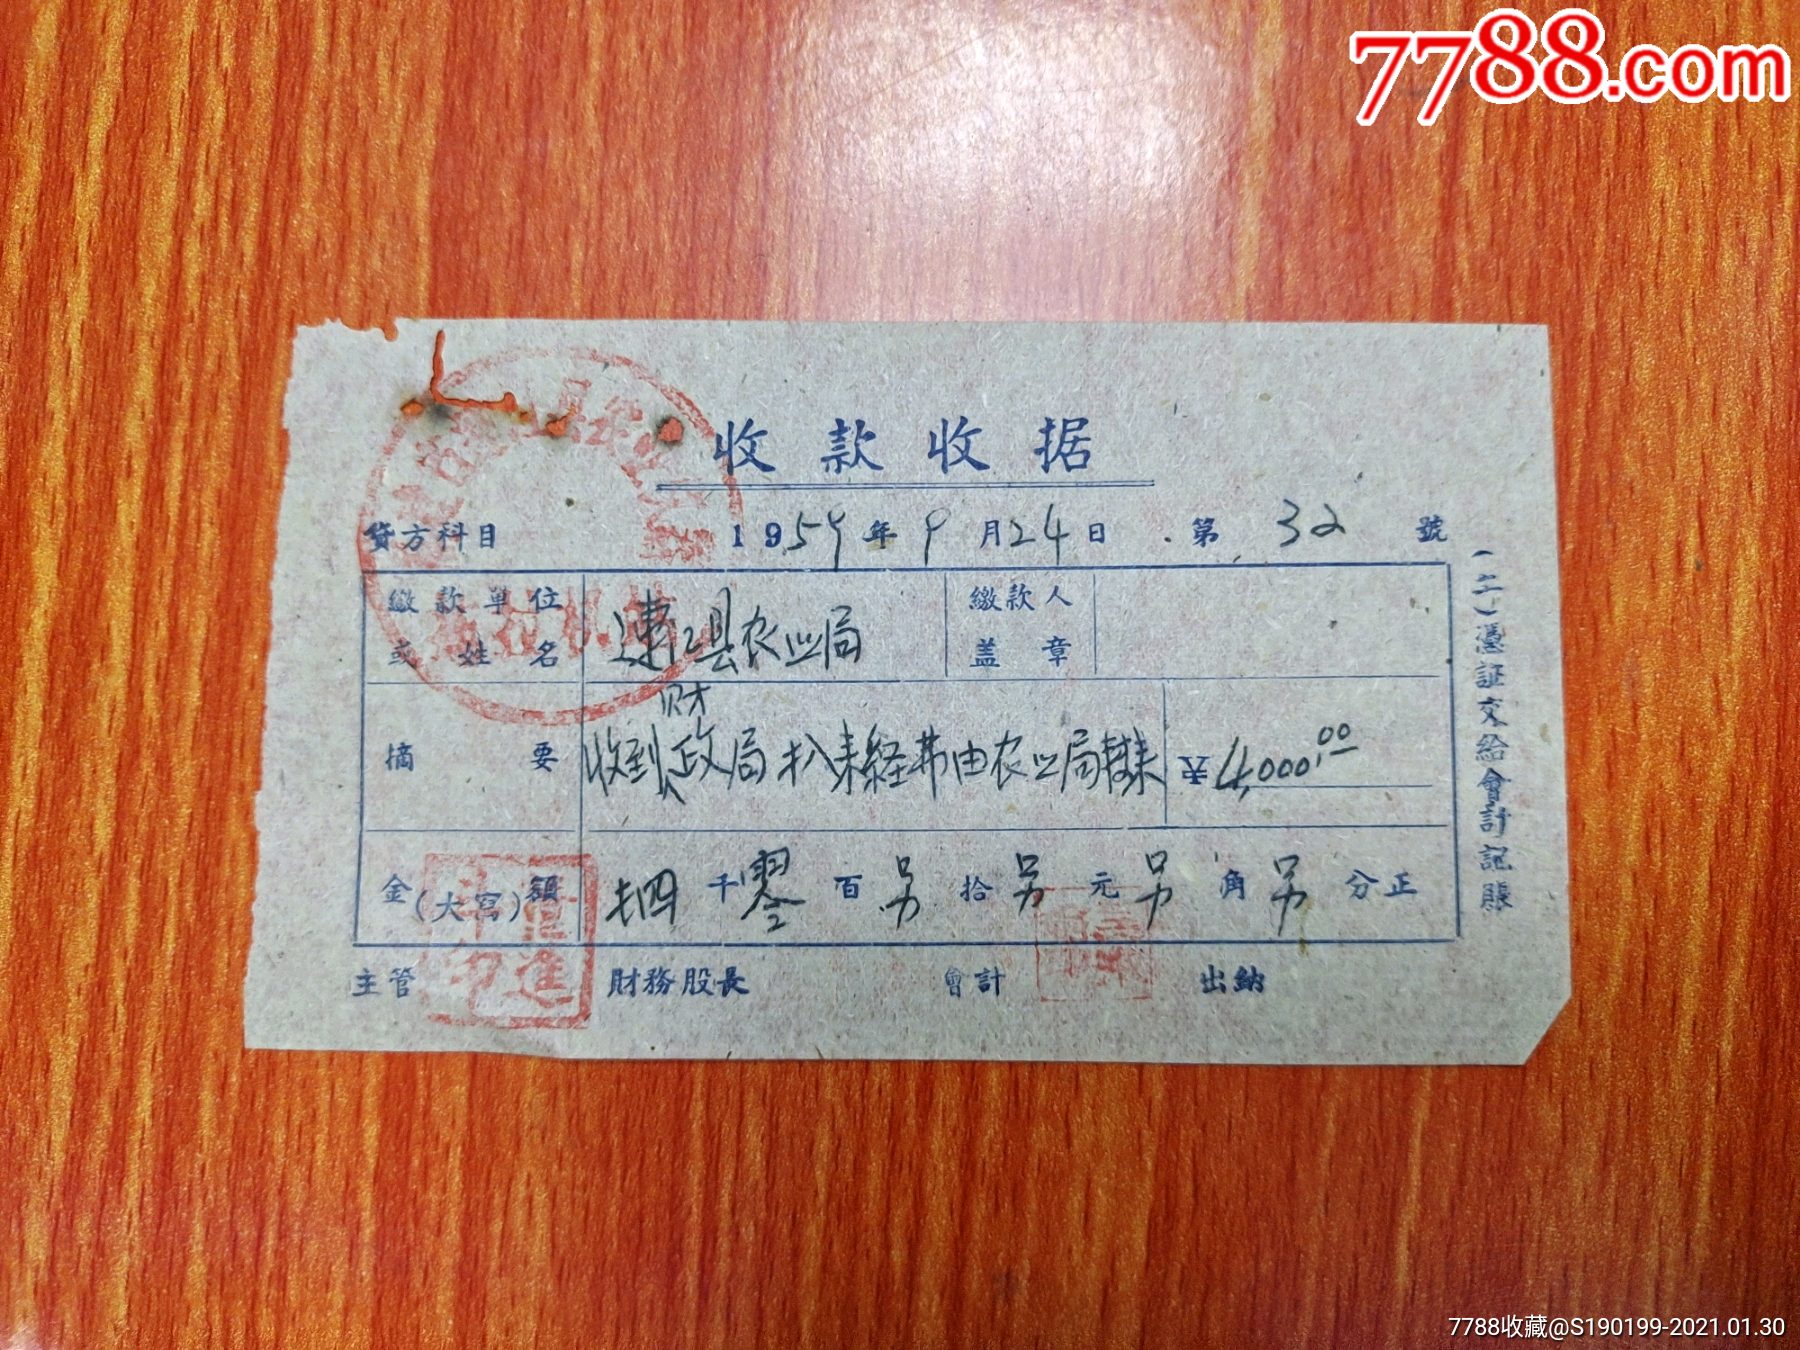 7788.com
收款收据
貸方科目 1959年9月24日 第 32 號
繳款單位或姓名 連江县农业局 繳款人盖章
摘要 收到财政局扒来経费由农业局轉来 4,000.00
金額(大寫) 四千零百另拾另元另角另分正
主管 財務股長 會計 出納
(二)憑証交給會計記賬
7788收藏@S190199-2021.01.30